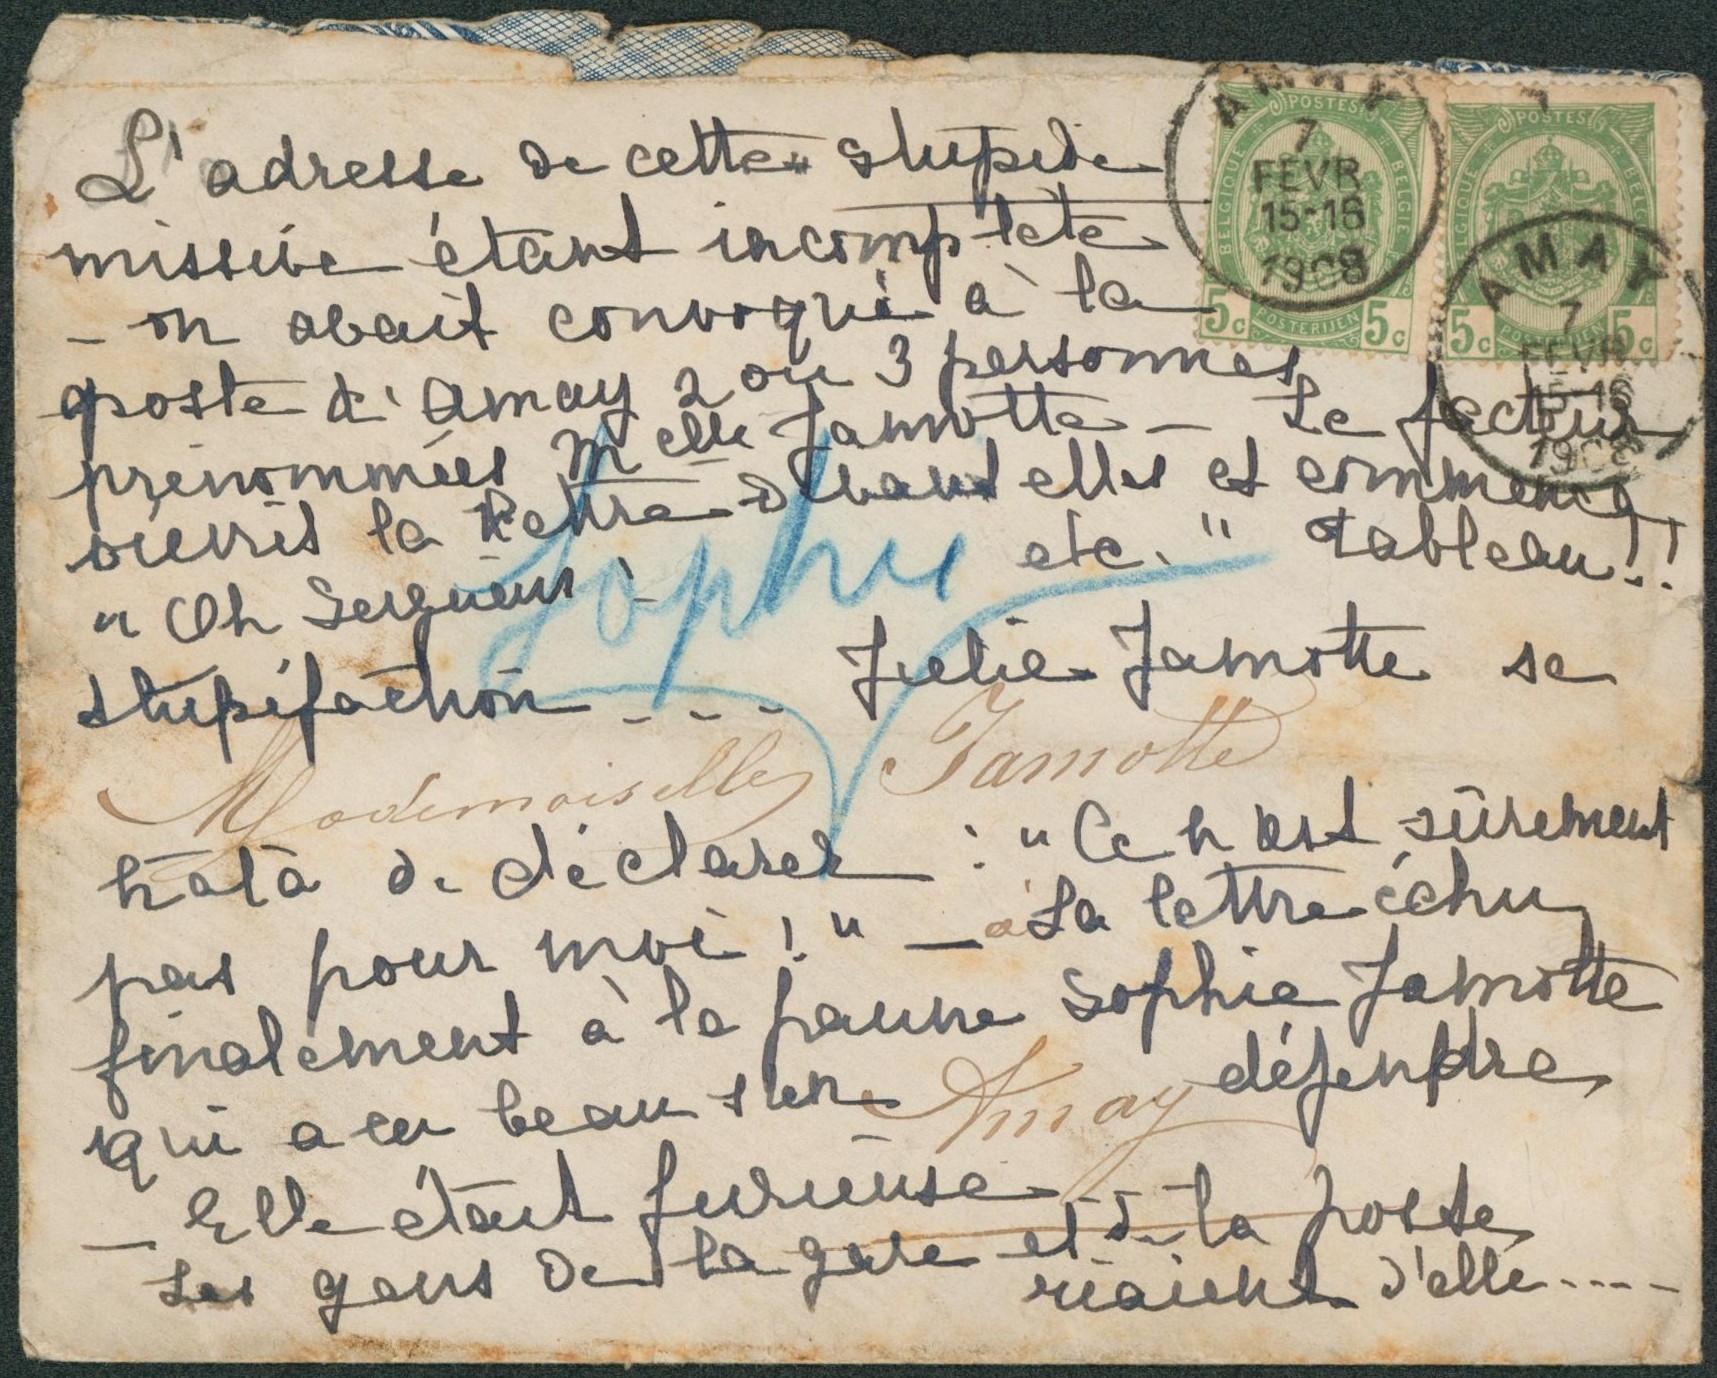 L'adresse de cette stupide
missive étant incomplète
- on avait convoqué à la
poste d'Amay 2 ou 3 personnes
prénommées Melle Jamotte - Le facteur
ouvrit la lettre devant elles et commença
"Oh Seigneur! etc." Tableau!!
Sophie
stupéfaction - - - - Julie Jamotte se
Mademoiselle Jamotte
hâta de déclarer : "Ce n'est sûrement
pas pour moi!" - La lettre échu
finalement à la pauvre Sophie Jamotte
qui a eu beau s'en défendre
Amay
- Elle était furieuse
Les gens de la gare et de la poste
riaient d'elle ----
AMAY
7
FEVR
15-16
1908
POSTES
BELGIQUE BELGIE
5c POSTERIJEN 5c
POSTES
BELGIQUE BELGIE
5c POSTERIJEN 5c
AMAY
7
FEVR
15-16
1908